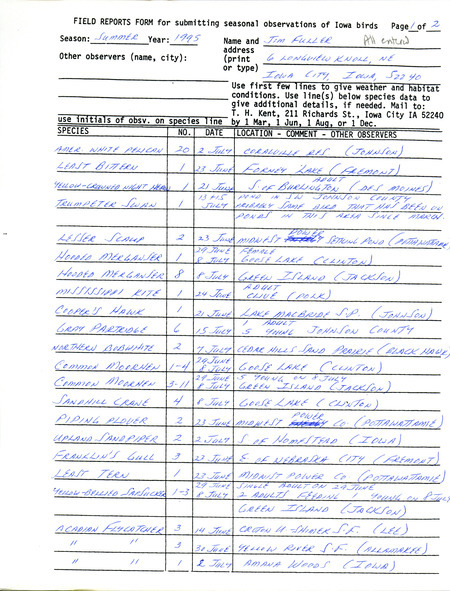 FIELD REPORTS FORM for submitting seasonal observations of Iowa birds Page 1 of 2
Season: SUMMER Year: 1995 Name and JIM FULLER All entered
address
Other observers (name, city): (print 6 LONGVIEW KNOLL, NE
or type) IOWA CITY, IOWA, 52240
Use first few lines to give weather and habitat
conditions. Use line(s) below species data to
give additional details, if needed. Mail to:
T. H. Kent, 211 Richards St., Iowa City IA 52240
use initials of obsv. on species line by 1 Mar, 1 Jun, 1 Aug, or 1 Dec.
SPECIES NO. DATE LOCATION - COMMENT - OTHER OBSERVERS
AMER WHITE PELICAN 20 2 JULY CORALVILLE RES (JOHNSON)
LEAST BITTERN 1 23 JUNE FORNEY LAKE (FREMONT)
ADULT
YELLOW-CROWNED NIGHT HERON 1 21 JUNE S OF BURLINGTON (DES MOINES)
13 & 15 POND IN SW JOHNSON COUNTY
TRUMPETER SWAN 1 JULY PRIMARILY SAME BIRD THAT HAS BEEN ON
PONDS IN THIS AREA SINCE MARCH
POWER
LESSER SCAUP 2 23 JUNE MIDWEST SETTLING POND (POTTAWATTAMIE)
29 JUNE FEMALE
HOODED MERGANSER 1 8 JULY GOOSE LAKE (CLINTON)
HOODED MERGANSER 8 8 JULY GREEN ISLAND (JACKSON)
ADULT
MISSISSIPPI KITE 1 24 JUNE CLIVE (POLK)
COOPER'S HAWK 1 21 JUNE LAKE MACBRIDE S.P. (JOHNSON)
1 ADULT
GRAY PARTRIDGE 6 15 JULY 5 YOUNG JOHNSON COUNTY
NORTHERN BOBWHITE 2 7 JULY CEDAR HILLS SAND PRAIRIE (BLACK HAWK)
29 JUNE
COMMON MOORHEN 1-4 8 JULY GOOSE LAKE (CLINTON)
29 JUNE 5 YOUNG ON 8 JULY
COMMON MOORHEN 3-11 8 JULY GREEN ISLAND (JACKSON)
SANDHILL CRANE 4 8 JULY GOOSE LAKE (CLINTON)
POWER
PIPING PLOVER 2 23 JUNE MIDWEST CO. (POTTAWATTAMIE)
UPLAND SANDPIPER 2 2 JULY S OF HOMESTEAD (IOWA)
FRANKLIN'S GULL 3 23 JUNE E OF NEBRASKA CITY (FREMONT)
LEAST TERN 1 23 JUNE MIDWEST POWER CO (POTTAWATTAMIE)
29 JUNE SINGLE ADULT ON 29 JUNE
YELLOW-BELLIED SAPSUCKER 1-3 8 JULY 2 ADULTS FEEDING 1 YOUNG ON 8 JULY
GREEN ISLAND (JACKSON)
ACADIAN FLYCATCHER 3 14 JUNE CROTON U-SHIMEK S.F. (LEE)
" " 3 30 JUNE YELLOW RIVER S.F. (ALLAMAKEE)
" " 1 2 JULY AMANA WOODS (IOWA)